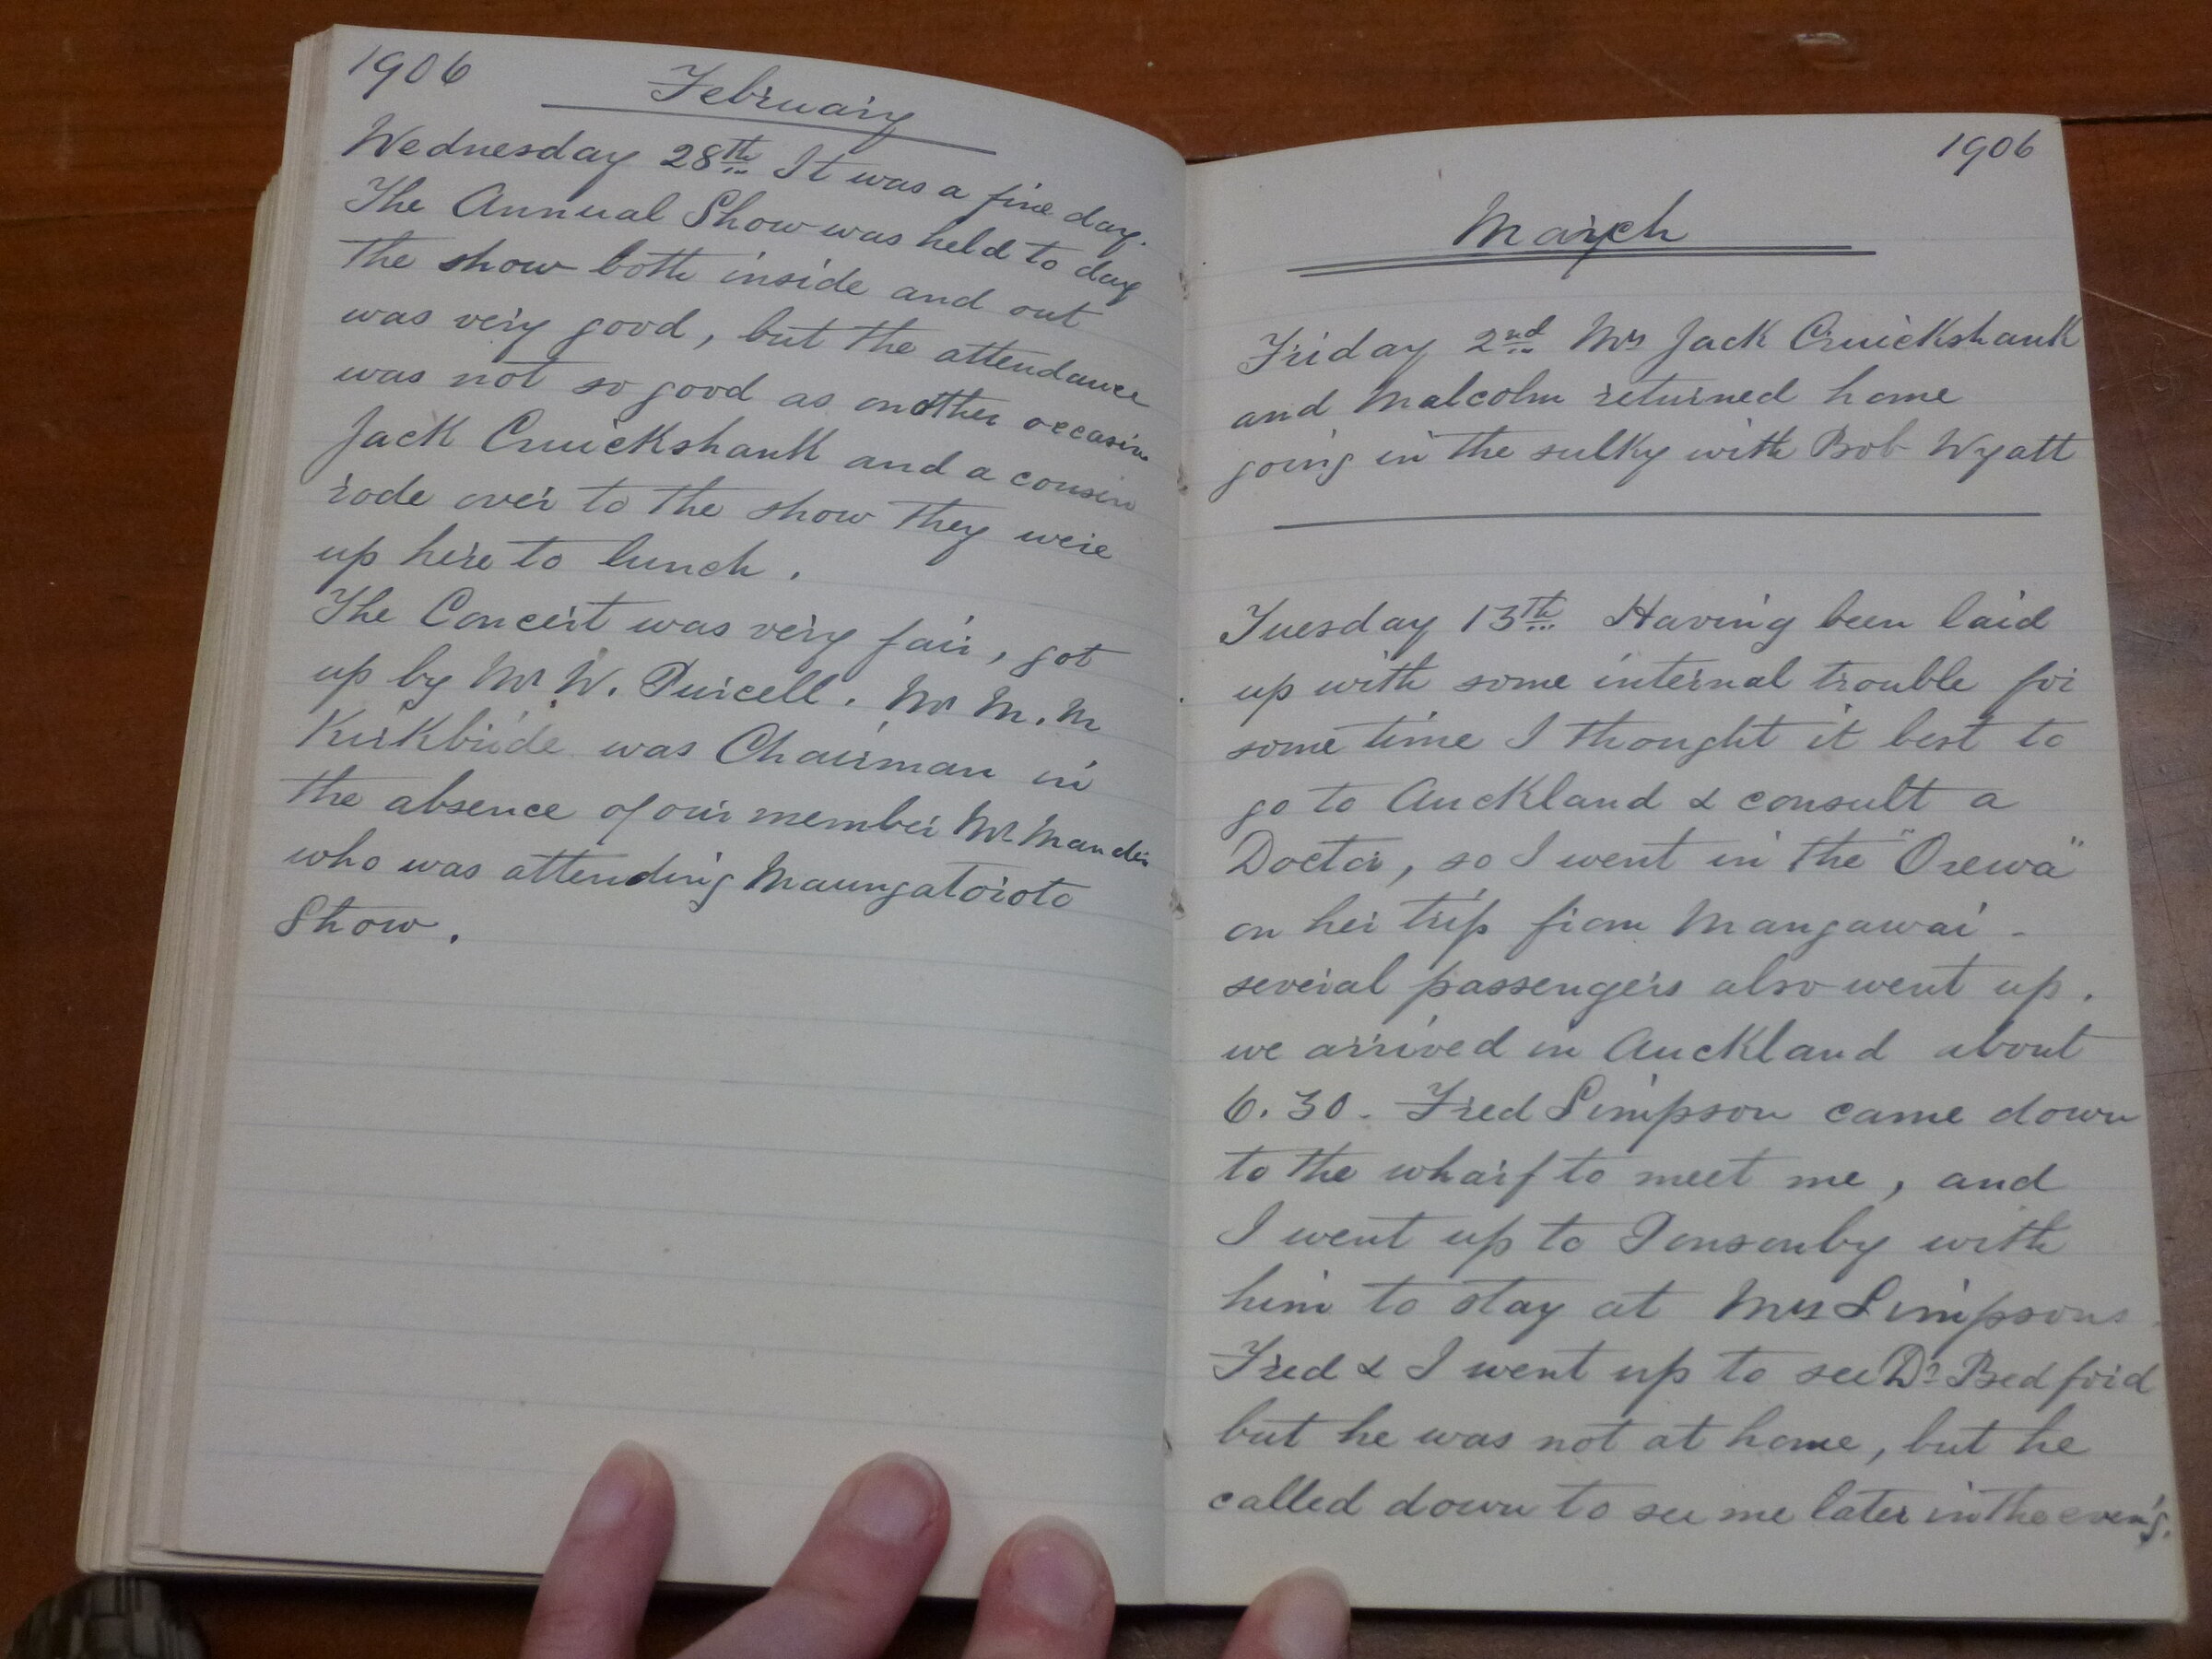 1906
February
Wednesday 28th It was a fine day.
The Annual Show was held to day
the show both inside and out
was very good, but the attendance
was not so good as on other occasion
Jack Cruickshank and a cousin
rode over to the show they were
up here to lunch.
The Concert was very fair, got
up by Mr W. Purcell. Mr M. M
Kirkbride was Chairman in
the absence of our member Mr Mander
who was attending Maungatoroto
Show.
1906
March
Friday 2nd Mrs Jack Cruickshank
and Malcolm returned home
going in the sulky with Bob Wyatt
Tuesday 13th Having been laid
up with some internal trouble for
some time I thought it best to
go to Auckland & consult a
Doctor, so I went in the "Orewa"
on her trip from Mangawai -
several passengers also went up.
we arrived in Auckland about
6.30. Fred Simpson came down
to the wharf to meet me, and
I went up to Ponsonby with
him to stay at Mrs Simpsons
Fred & I went up to see Dr Bedford
but he was not at home, but he
called down to see me later in the even'g.